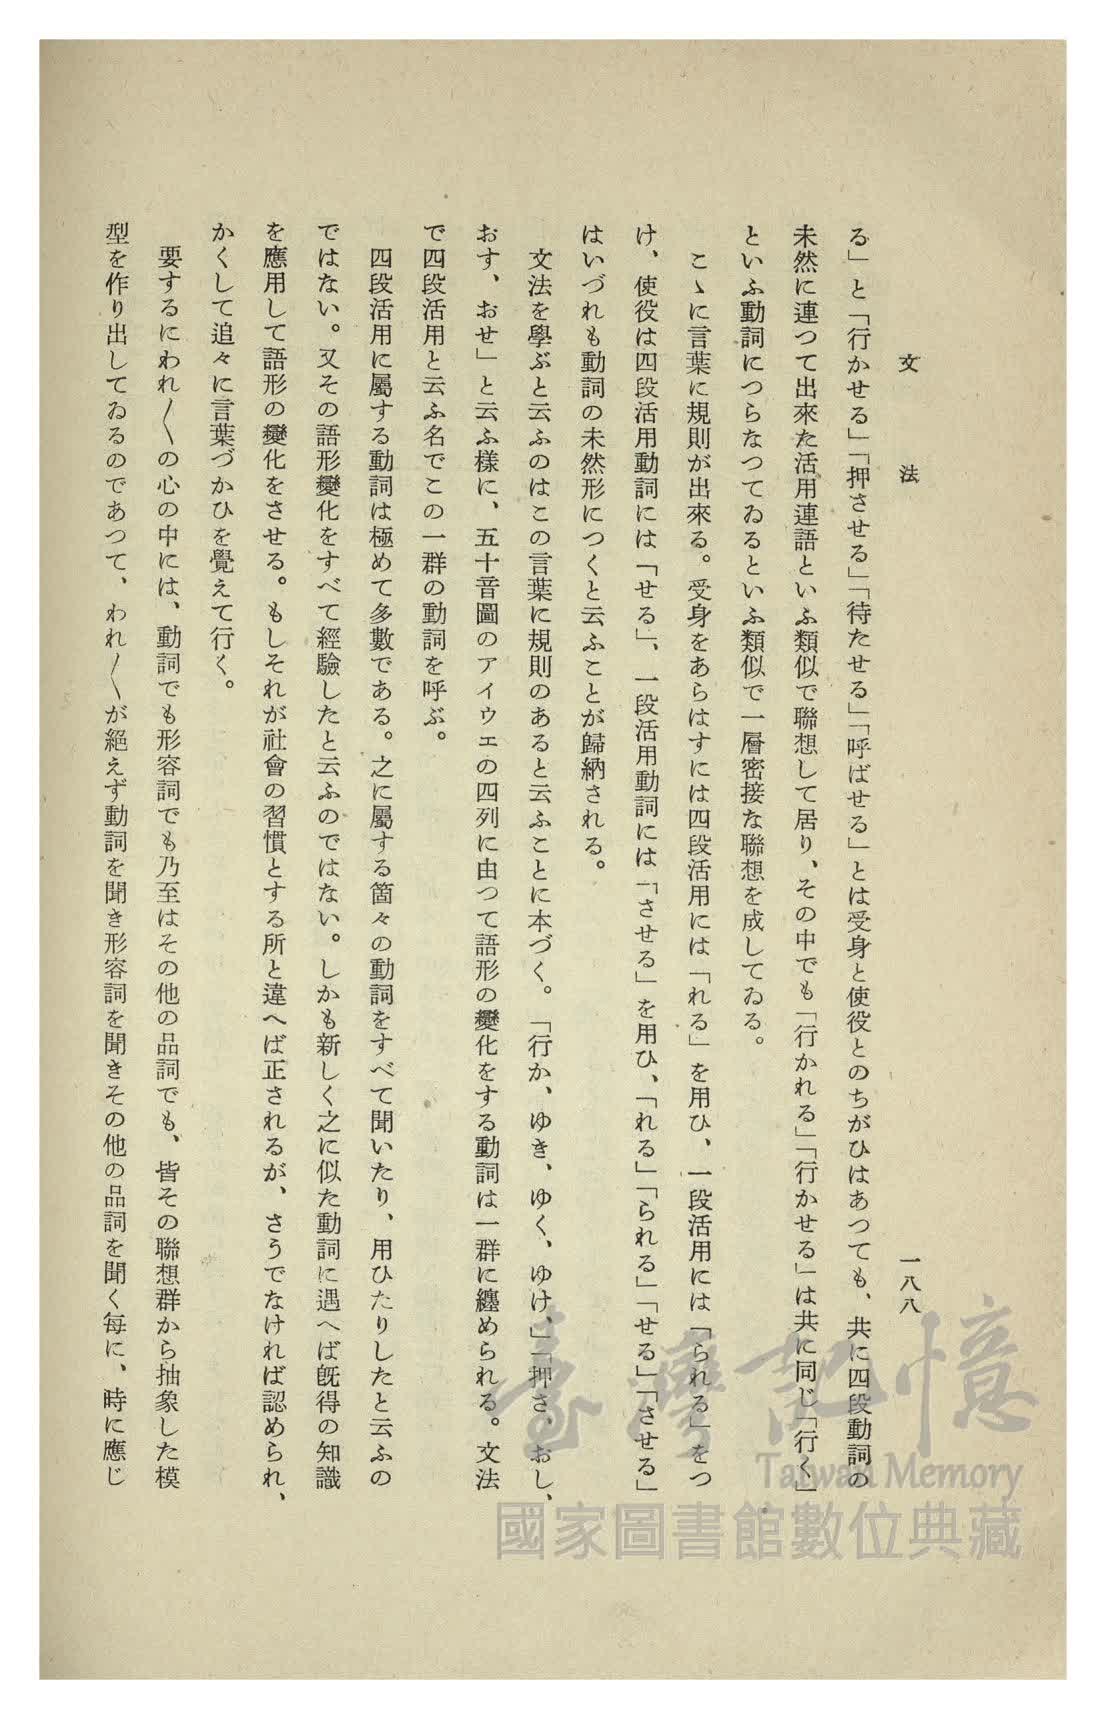 文法
一八八
る」と「行かせる」「押させる」「待たせる」「呼ばせる」とは受身と使役とのちがひはあつても、共に四段動詞の
未然に連つて出來た活用連語といふ類似で聯想して居り、その中でも「行かれる」「行かせる」は共に同じ「行く」
といふ動詞につらなつてゐるといふ類似で一層密接な聯想を成してゐる。
こゝに言葉に規則が出來る。受身をあらはすには四段活用には「れる」を用ひ、一段活用には「られる」をつ
け、使役は四段活用動詞には「せる」、一段活用動詞には「させる」を用ひ、「れる」「られる」「せる」「させる」
はいづれも動詞の未然形につくと云ふことが歸納される。
文法を學ぶと云ふのはこの言葉に規則のあると云ふことに本づく。「行か、ゆき、ゆく、ゆけ、」「押さ、おし、
おす、おせ」と云ふ樣に、五十音圖のアイウエの四列に由つて語形の變化をする動詞は一群に纏められる。文法
で四段活用と云ふ名でこの一群の動詞を呼ぶ。
四段活用に屬する動詞は極めて多數である。之に屬する箇々の動詞をすべて聞いたり、用ひたりしたと云ふの
ではない。又その語形變化をすべて經驗したと云ふのではない。しかも新しく之に似た動詞に遇へば旣得の知識
を應用して語形の變化をさせる。もしそれが社會の習慣とする所と違へば正されるが、さうでなければ認められ、
かくして追々に言葉づかひを覺えて行く。
要するにわれ〱の心の中には、動詞でも形容詞でも乃至はその他の品詞でも、皆その聯想群から抽象した模
型を作り出してゐるのであつて、われ〱が絕えず動詞を聞き形容詞を聞きその他の品詞を聞く每に、時に應じ
臺灣記憶
Taiwan Memory
國家圖書館數位典藏